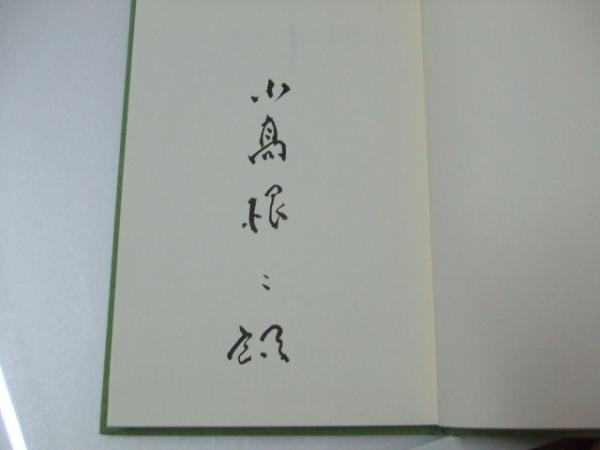 小高根二郎